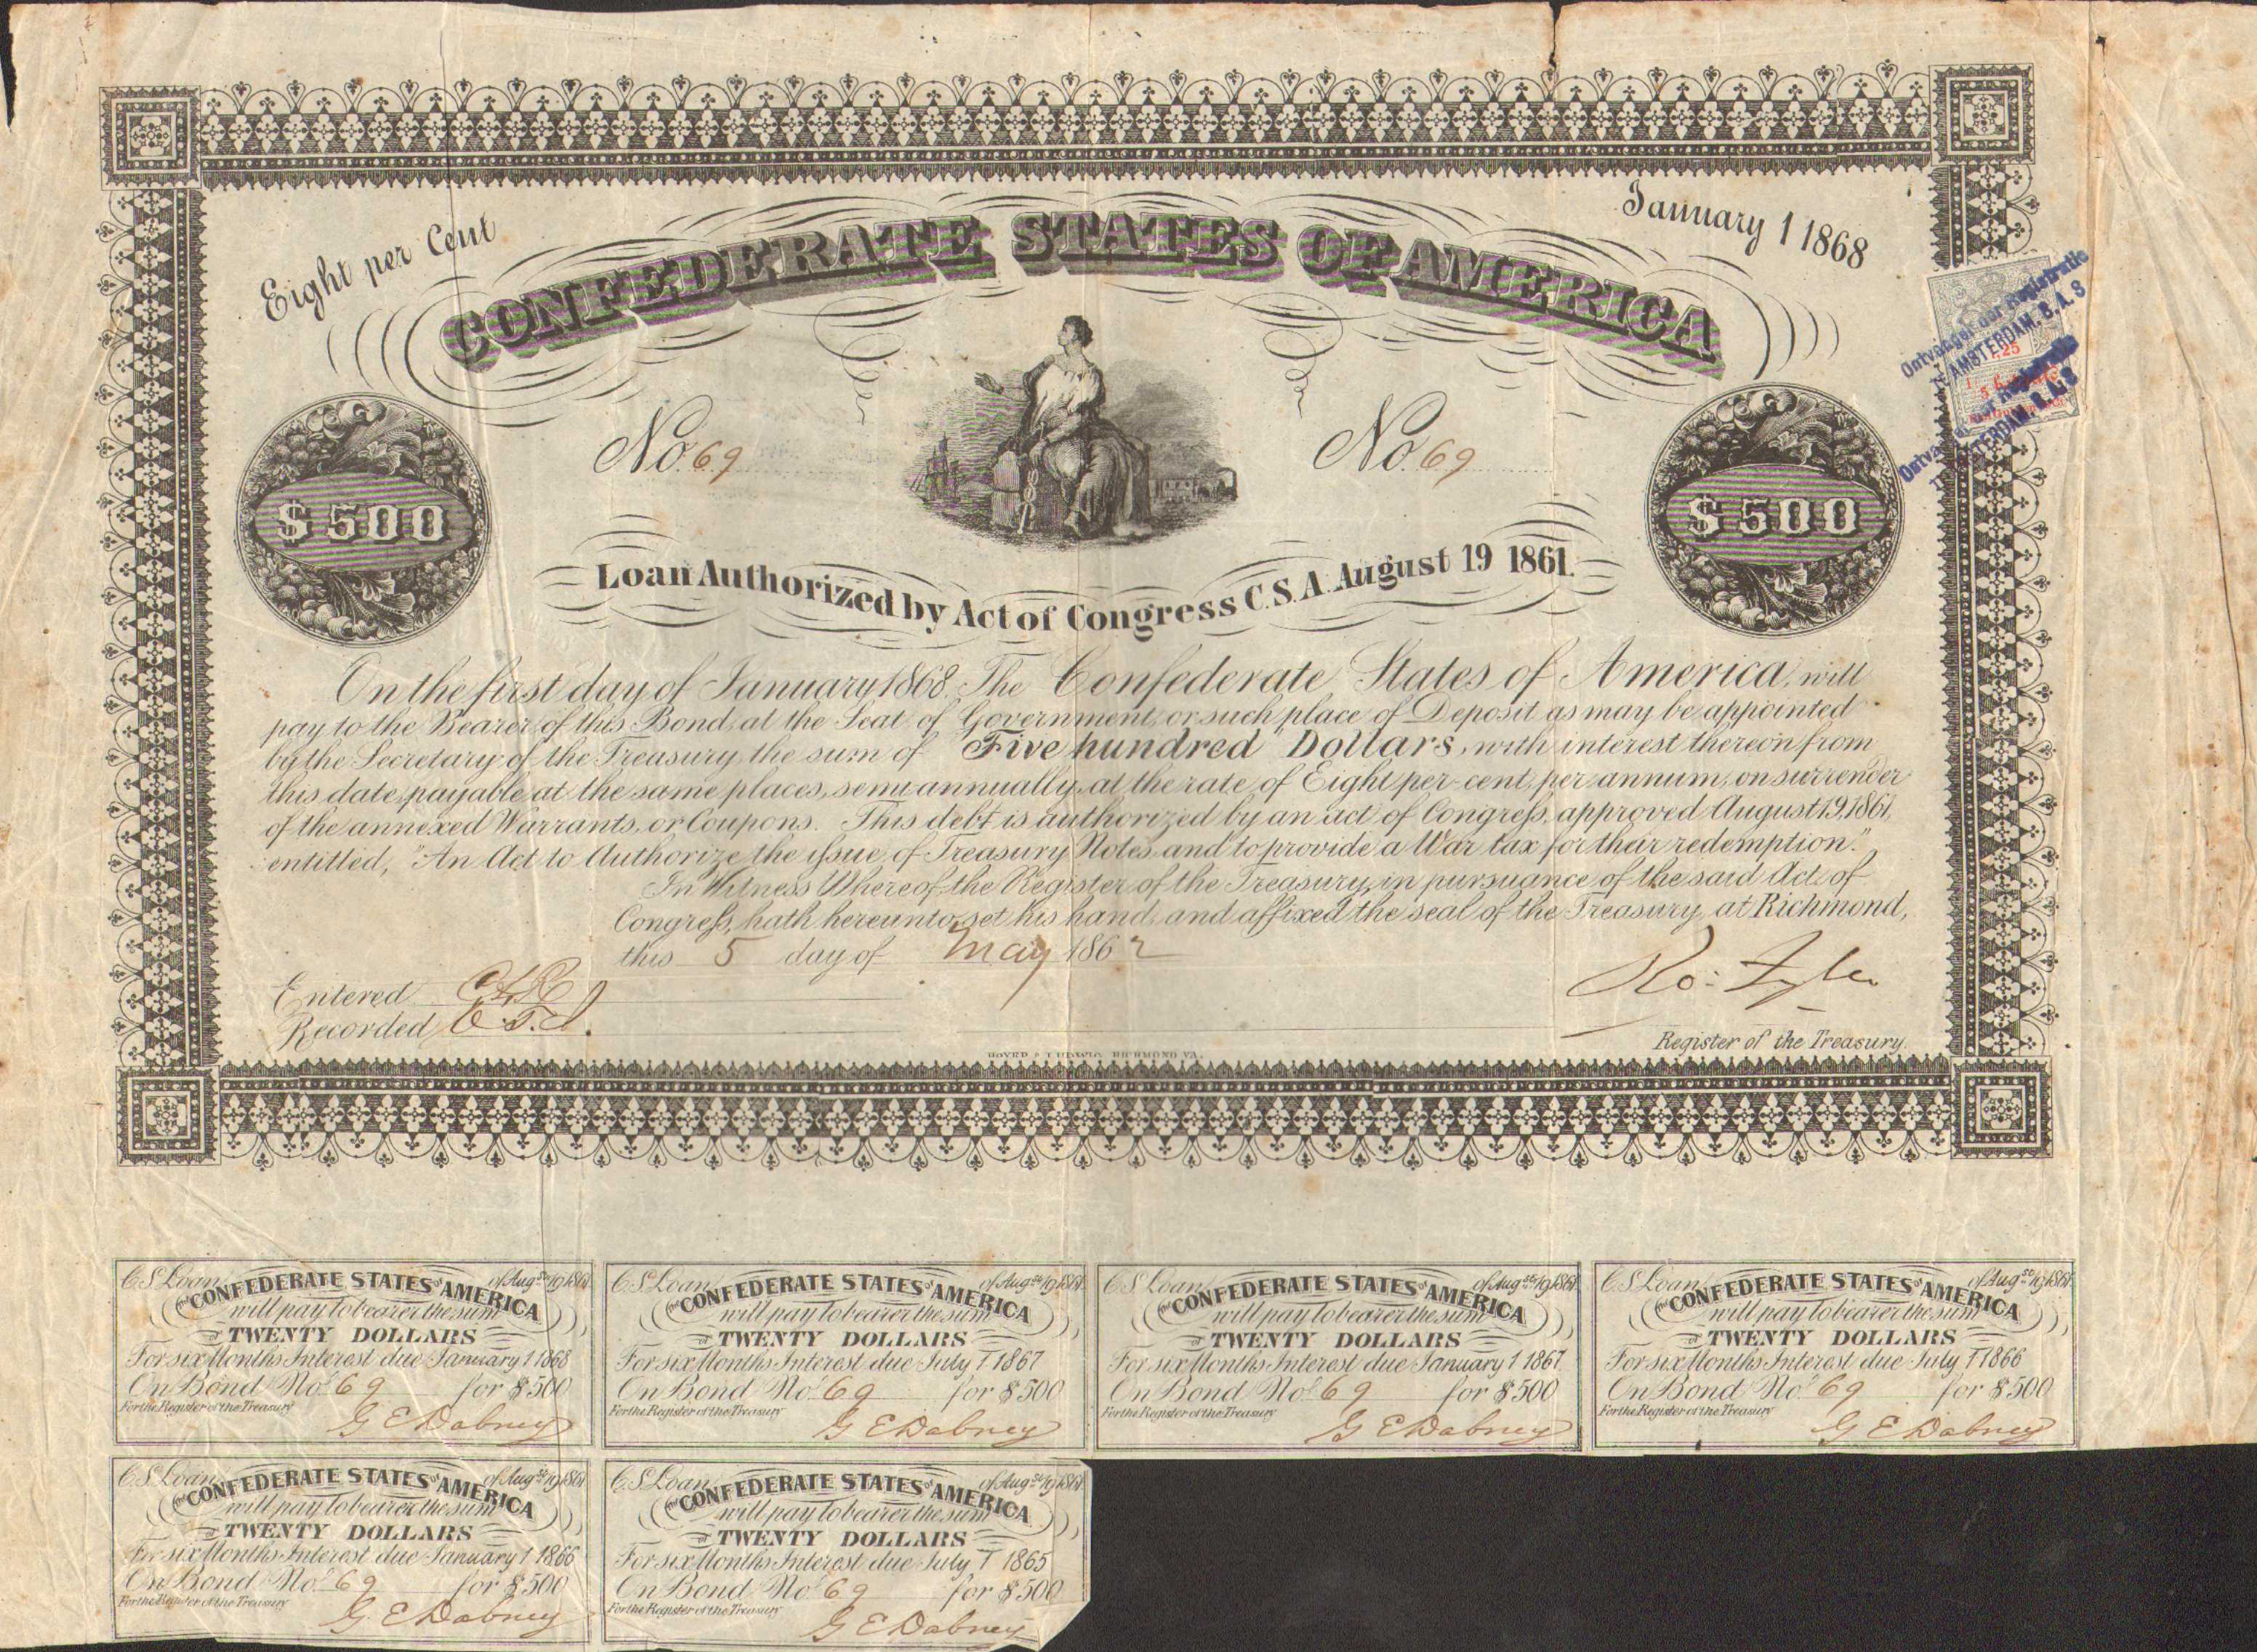 Eight per Cent
January 1 1868
CONFEDERATE STATES OF AMERICA
No. 69
No. 69
$500
$500
Loan Authorized by Act of Congress C.S.A. August 19 1861.
On the first day of January 1868. The Confederate States of America, will
pay to the Bearer of this Bond, at the Seat of Government, or such place of Deposit as may be appointed
by the Secretary of the Treasury, the sum of "Five hundred" Dollars, with interest thereon from
this date, payable at the same places, semi annually, at the rate of Eight per-cent, per annum, on surrender
of the annexed Warrants, or Coupons. This debt is authorized by an act of Congress, approved August 19, 1861,
entitled, "An Act to Authorize the issue of Treasury Notes and to provide a War tax for their redemption."
In Witness Whereof, the Register of the Treasury, in pursuance of the said Act of
Congress, hath hereunto, set his hand, and affixed the seal of the Treasury, at Richmond,
this 5 day of May 1862
Entered
Recorded
Ro: Tyler
Register of the Treasury.
HOYER & LUDWIG, RICHMOND VA.
Ontvanger der Registratie
TE AMSTERDAM. B.A. 8
25
C.S. Loan of Aug. st 19 1861.
THE CONFEDERATE STATES OF AMERICA
will pay to bearer the sum
OF TWENTY DOLLARS
For six Months Interest due January 1 1868
On Bond No. 69 for $500
For the Register of the Treasury
G E Dabney
C.S. Loan of Aug. st 19 1861.
THE CONFEDERATE STATES OF AMERICA
will pay to bearer the sum
OF TWENTY DOLLARS
For six Months Interest due July 1 1867
On Bond No. 69 for $500
For the Register of the Treasury
G E Dabney
C.S. Loan of Aug. st 19 1861.
THE CONFEDERATE STATES OF AMERICA
will pay to bearer the sum
OF TWENTY DOLLARS
For six Months Interest due January 1 1867
On Bond No. 69 for $500
For the Register of the Treasury
G E Dabney
C.S. Loan of Aug. st 19 1861.
THE CONFEDERATE STATES OF AMERICA
will pay to bearer the sum
OF TWENTY DOLLARS
For six Months Interest due July 1 1866
On Bond No. 69 for $500
For the Register of the Treasury
G E Dabney
C.S. Loan of Aug. st 19 1861.
THE CONFEDERATE STATES OF AMERICA
will pay to bearer the sum
OF TWENTY DOLLARS
For six Months Interest due January 1 1866
On Bond No. 69 for $500
For the Register of the Treasury
G. E Dabney
C.S. Loan of Aug. st 19 1861.
THE CONFEDERATE STATES OF AMERICA
will pay to bearer the sum
OF TWENTY DOLLARS
For six Months Interest due July 1 1865
On Bond No. 69 for $500
For the Register of the Treasury
G E Dabney